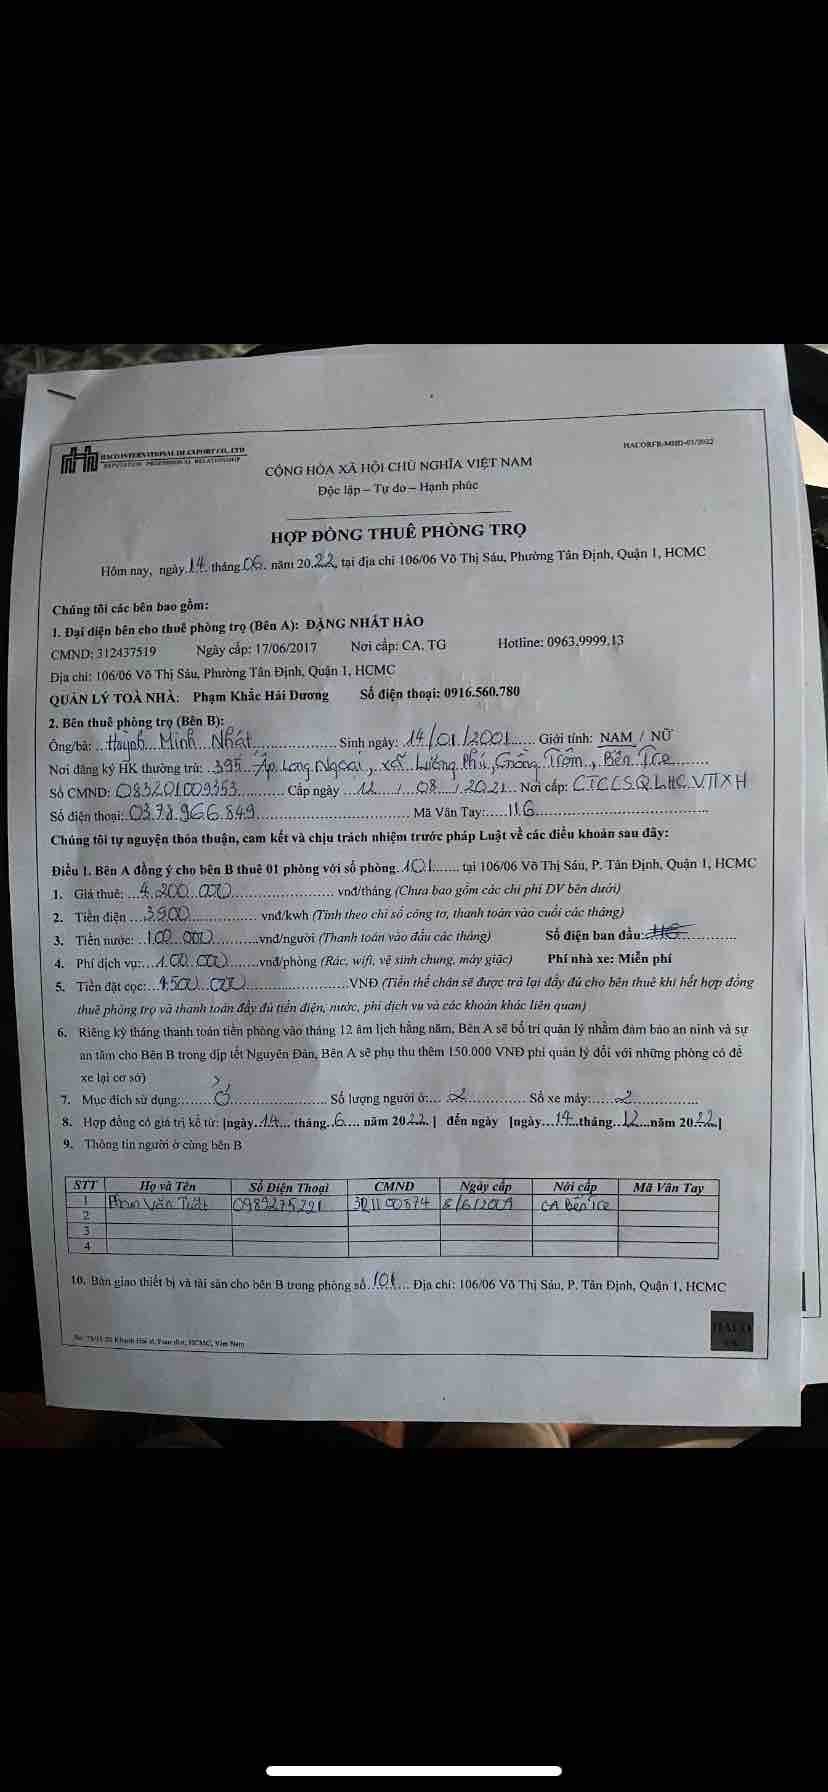 HACO INTERNATIONAL IM EXPORT CO., LTD
REPUTATION PROFESSIONAL RELATIONSHIP
HACORFR-MHD-01/2022
CỘNG HÒA XÃ HỘI CHỦ NGHĨA VIỆT NAM
Độc lập – Tự do – Hạnh phúc
HỢP ĐỒNG THUÊ PHÒNG TRỌ
Hôm nay, ngày 14 tháng 06 năm 2022, tại địa chỉ 106/06 Võ Thị Sáu, Phường Tân Định, Quận 1, HCMC
Chúng tôi các bên bao gồm:
1. Đại diện bên cho thuê phòng trọ (Bên A): ĐẶNG NHẤT HÀO
CMND: 312437519 Ngày cấp: 17/06/2017 Nơi cấp: CA. TG Hotline: 0963.9999.13
Địa chỉ: 106/06 Võ Thị Sáu, Phường Tân Định, Quận 1, HCMC
QUẢN LÝ TOÀ NHÀ: Phạm Khắc Hải Dương Số điện thoại: 0916.560.780
2. Bên thuê phòng trọ (Bên B):
Ông/bà: Huỳnh Minh Nhất Sinh ngày: 14/01/2001 Giới tính: NAM / NỮ
Nơi đăng ký HK thường trú: 395 Ấp Long Ngoại, xã Lương Phú, Giồng Trôm, Bến Tre
Số CMND: 083201009353 Cấp ngày 12 / 08 / 2021 Nơi cấp:
Số điện thoại: 0378.966.849 Mã Vân Tay: 116
Chúng tôi tự nguyện thỏa thuận, cam kết và chịu trách nhiệm trước pháp Luật về các điều khoản sau đây:
Điều 1. Bên A đồng ý cho bên B thuê 01 phòng với số phòng 101 tại 106/06 Võ Thị Sáu, P. Tân Định, Quận 1, HCMC
1. Giá thuê: 4.200.000 vnđ/tháng (Chưa bao gồm các chi phí DV bên dưới)
2. Tiền điện 3900 vnđ/kwh (Tính theo chỉ số công tơ, thanh toán vào cuối các tháng)
3. Tiền nước: 100.000 vnđ/người (Thanh toán vào đầu các tháng) Số điện ban đầu:
4. Phí dịch vụ: 100.000 vnđ/phòng (Rác, wifi, vệ sinh chung, máy giặc) Phí nhà xe: Miễn phí
5. Tiền đặt cọc: 4500.000 VNĐ (Tiền thế chân sẽ được trả lại đầy đủ cho bên thuê khi hết hợp đồng
thuê phòng trọ và thanh toán đầy đủ tiền điện, nước, phí dịch vụ và các khoản khác liên quan)
6. Riêng kỳ tháng thanh toán tiền phòng vào tháng 12 âm lịch hằng năm, Bên A sẽ bố trí quản lý nhằm đảm bảo an ninh và sự
an tâm cho Bên B trong dịp tết Nguyên Đán, Bên A sẽ phụ thu thêm 150.000 VNĐ phí quản lý đối với những phòng có để
xe lại cơ sở)
7. Mục đích sử dụng: Ở Số lượng người ở: 2 Số xe máy: 2
8. Hợp đồng có giá trị kể từ: [ngày 14 tháng 6 năm 2022 ] đến ngày [ngày 14 tháng 12 năm 2022]
9. Thông tin người ở cùng bên B
STT Họ và Tên Số Điện Thoại CMND Ngày cấp Nơi cấp Mã Vân Tay
1 Phan Văn 0989275221 8/6/2009 CA Bến Tre
2
3
4
10. Bàn giao thiết bị và tài sản cho bên B trong phòng số 101 Địa chỉ: 106/06 Võ Thị Sáu, P. Tân Định, Quận 1, HCMC
HACO